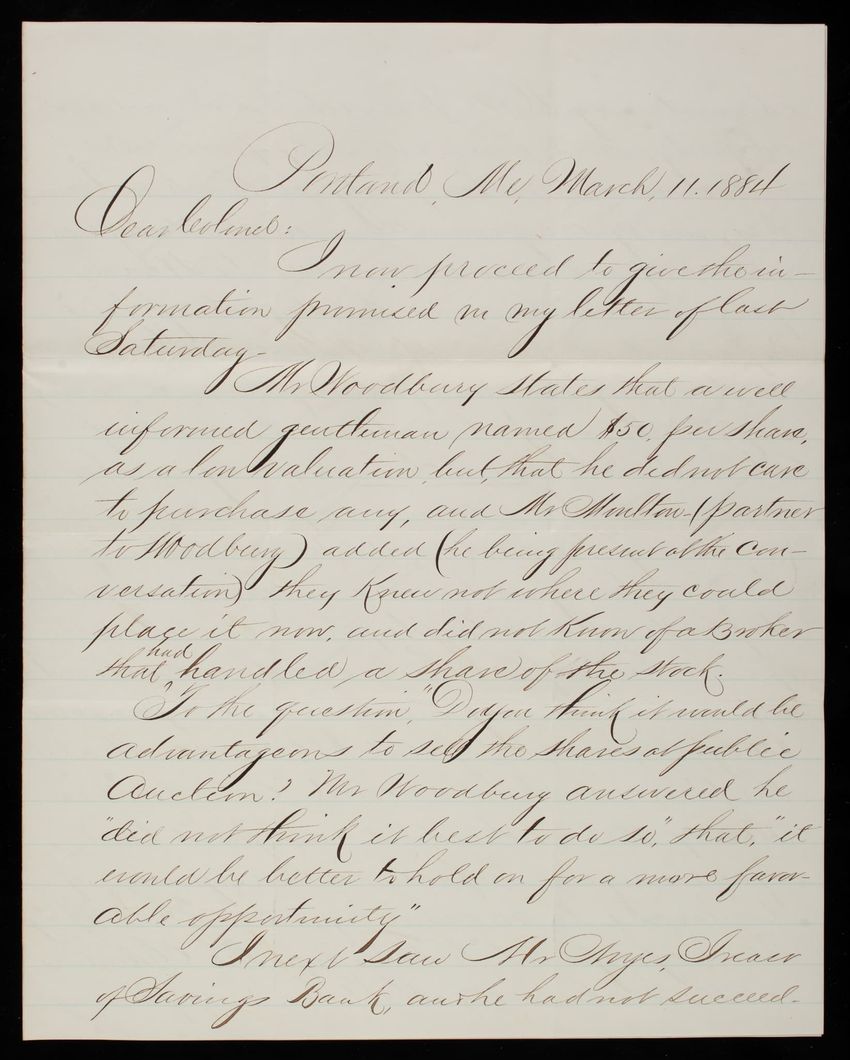 Portland, Me, March, 11. 1884
Dear Colonel:
I now proceed to give the in-
formation promised in my letter of last
Saturday.
Mr Woodbury states that a well
informed gentleman named $50. per share,
as a low valuation, but, that he did not care
to purchase any, and Mr Moulton (partner
to Woodbury) added (he being present at the con-
versation) they knew not where they could
place it now, and did not know of a Broker
that had handled a share of the stock.
"To the question", "Do you think it would be
advantageous to sell the shares at public
Auction? Mr Woodbury answered he
"did not think it best to do so," that, "it
would be better to hold on for a more favor-
able opportunity"
I next saw Mr Treasr
of Savings Bank, and he had not succeed-